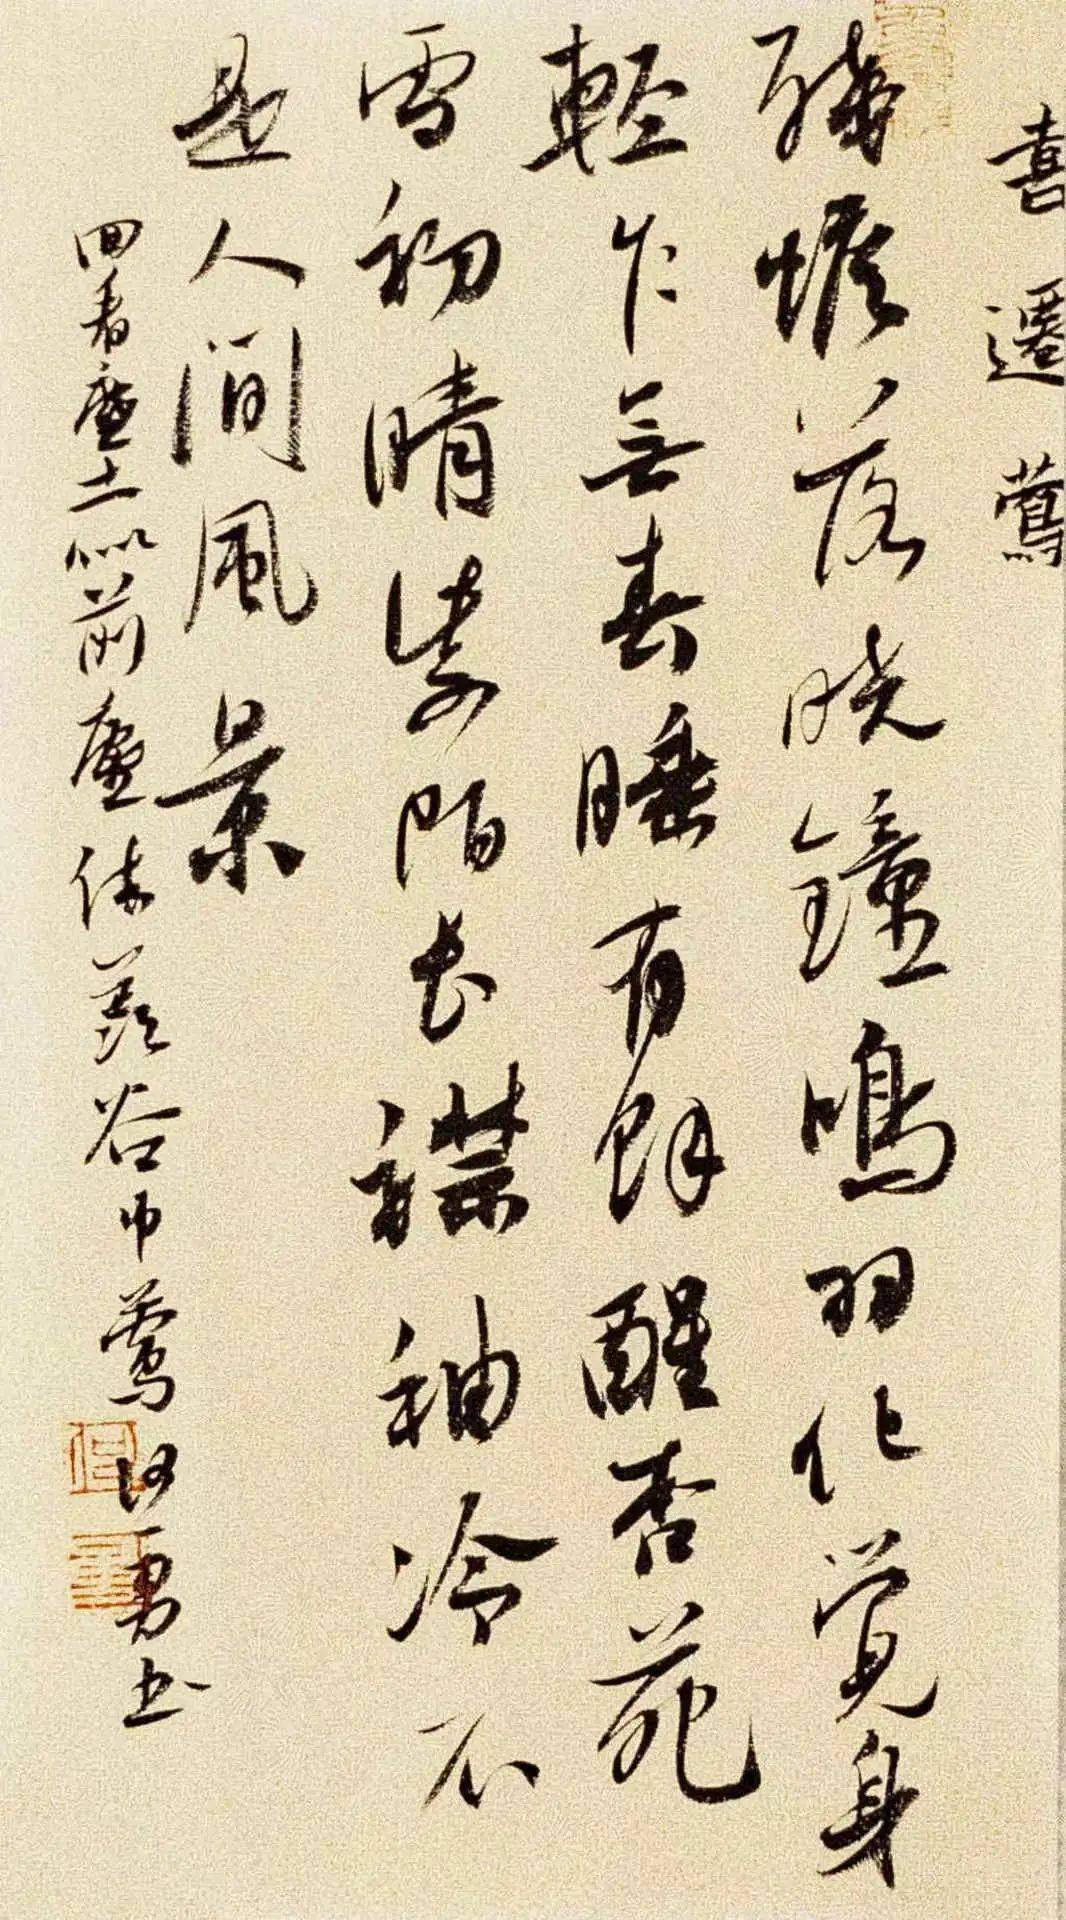 喜遷鶯
殘蟾落曉鐘鳴羽化覺身
輕乍無春睡有餘醒杏苑
雪初晴紫陌長襟袖冷不
是人間風景
回看塵土似前塵休羨谷中鶯 勇书